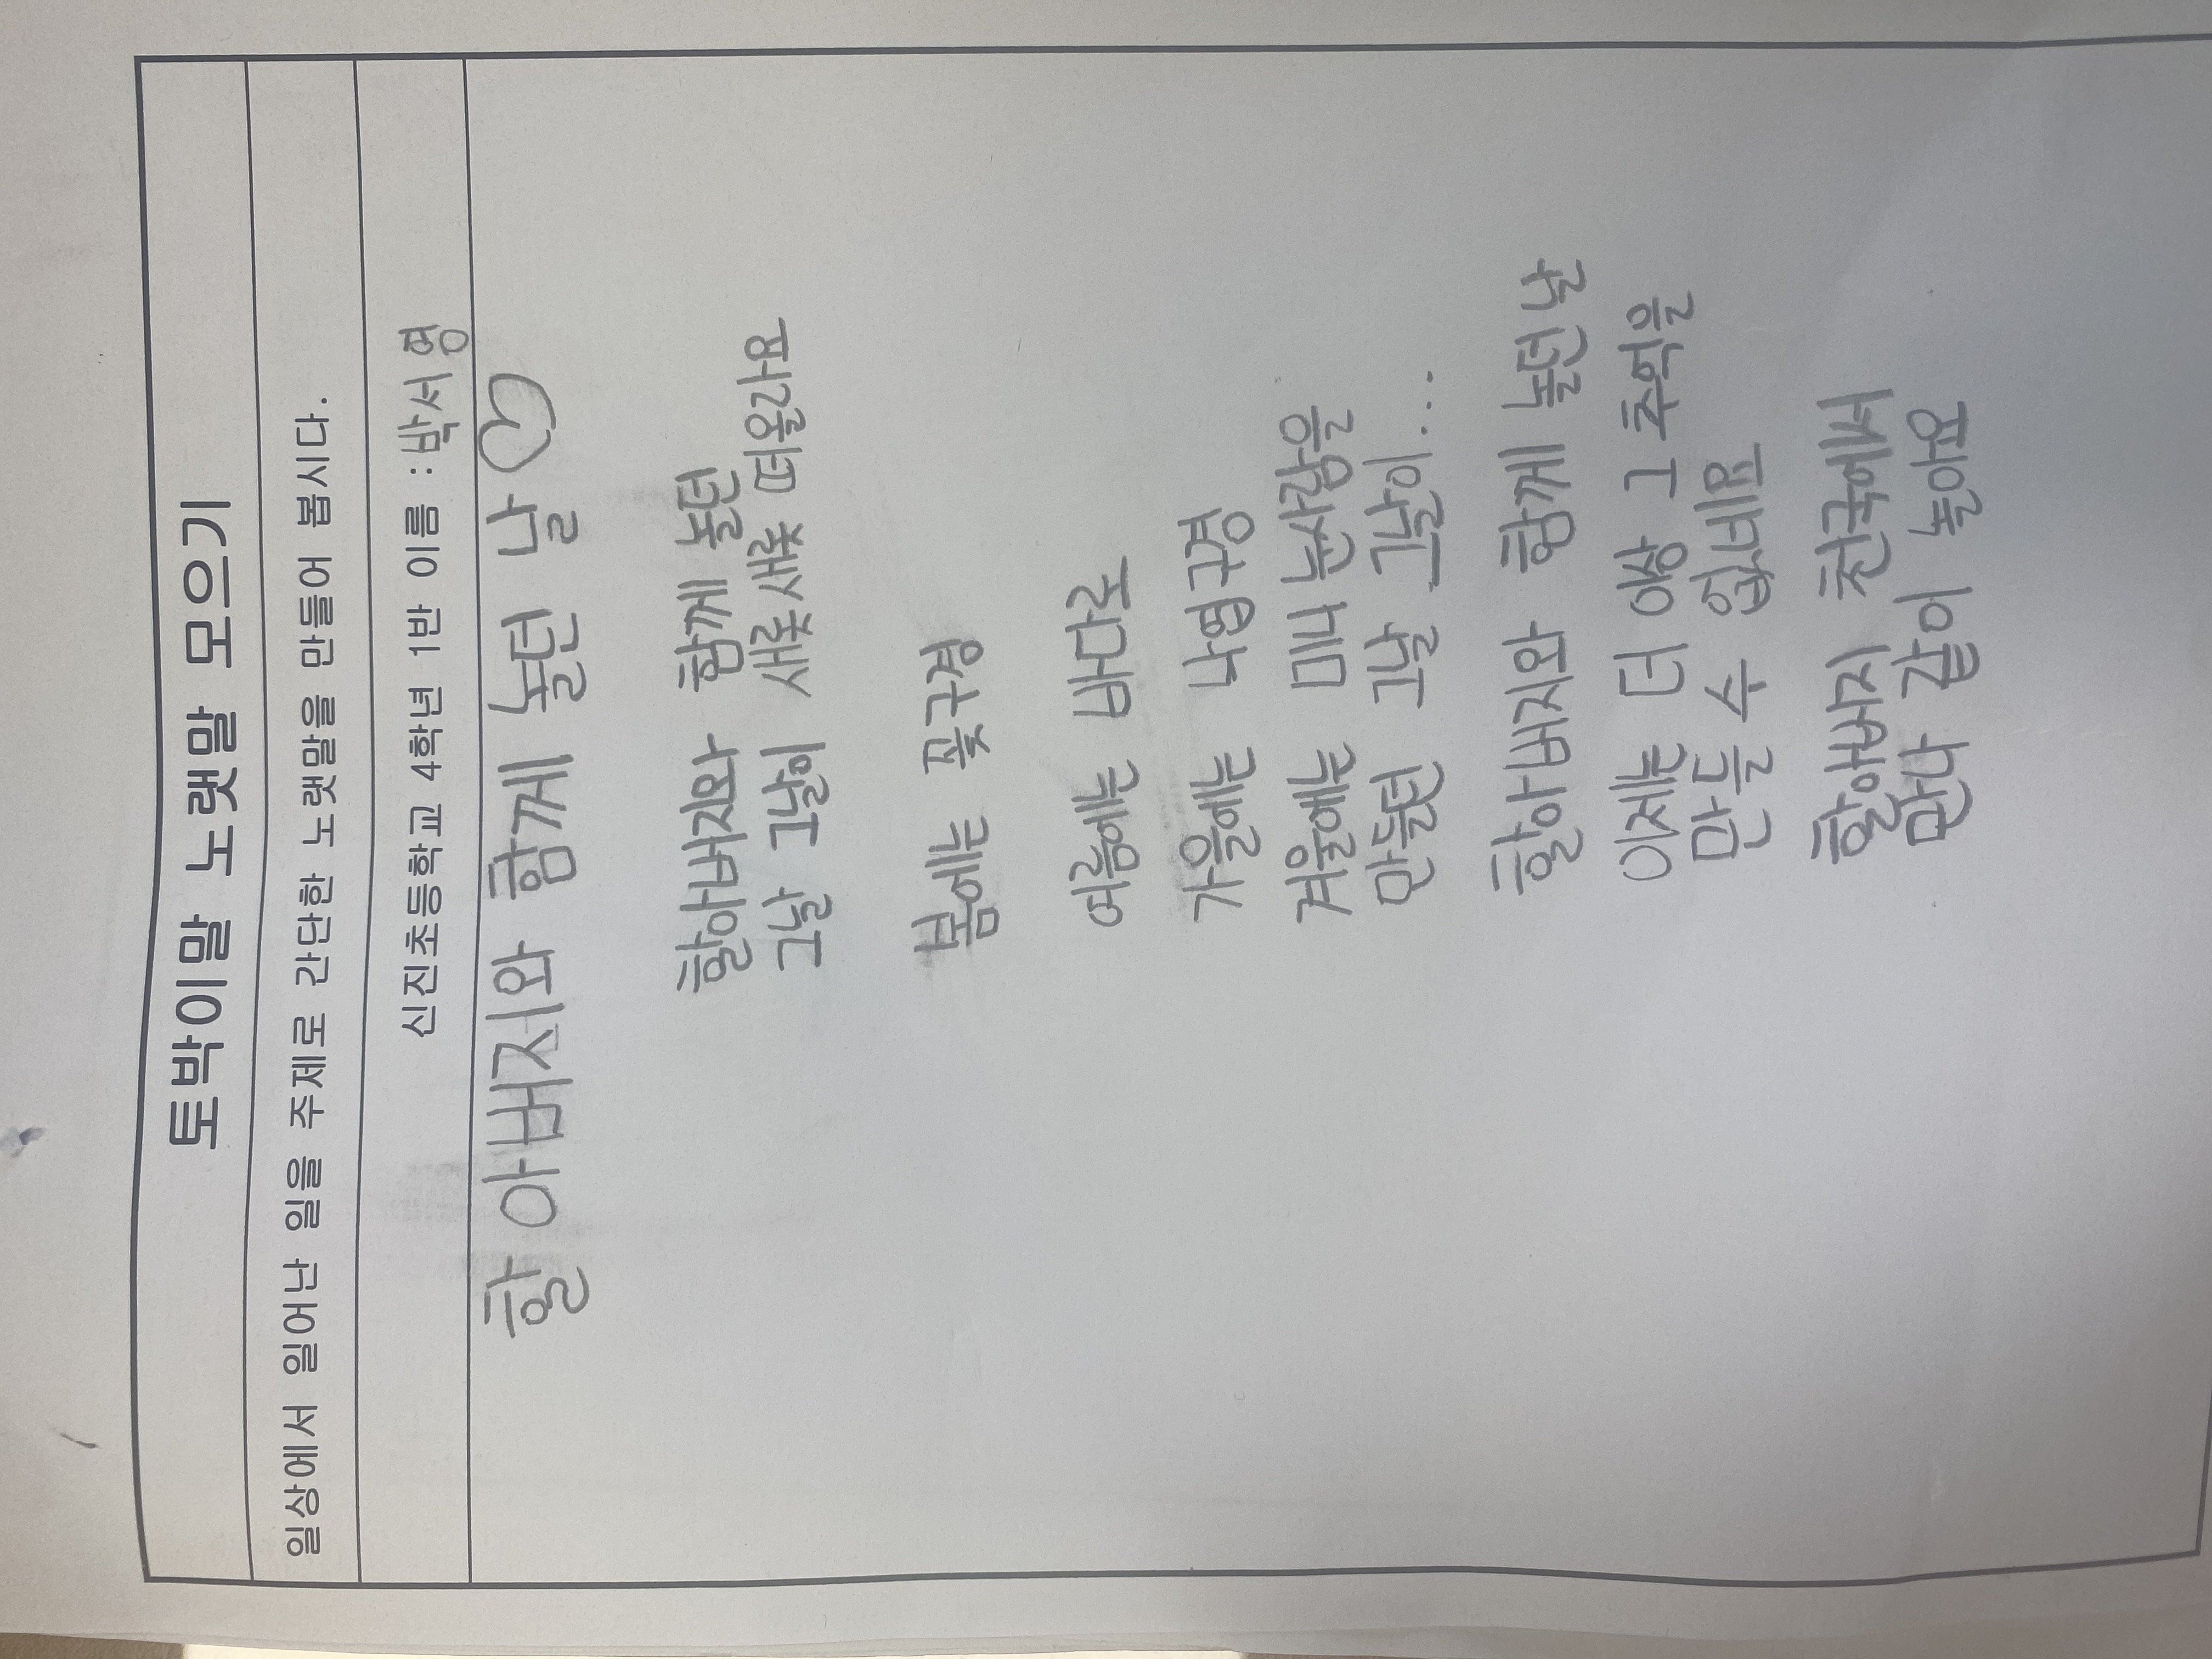 토박이말 노랫말 모으기
일상에서 일어난 일을 주제로 간단한 노랫말을 만들어 봅시다.
신진초등학교 4학년 1반 이름 : 박서영
할아버지와 함께 놀던 날♡
할아버지와 함께 놀던
그날 그날이 새록새록 떠올라요
봄에는 꽃구경
여름에는 바다로
가을에는 낙엽구경
겨울에는 미니 눈사람을
만들던 그날 그날이...
할아버지와 함께 놀던 날
이제는 더 이상 그 추억을
만들 수 없네요
할아버지 천국에서
만나 같이 놀아요